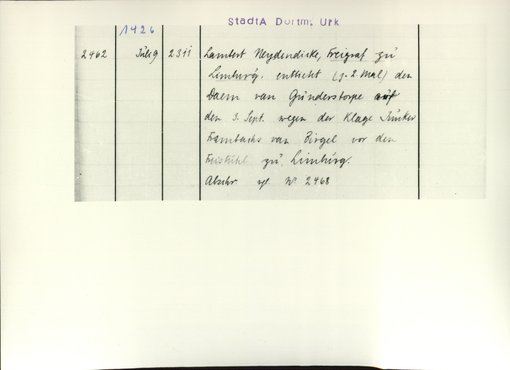 StadtA Dortm, Urk
1426
2462 Juli 9 2311 Lambert Neydendicke, Freigraf zu
Limburg, entbietet (z. 2. Mal) den
Daem van Gunderstorpe auf
den 3. Sept. wegen der Klage Junker
Frambachs van Birgel vor den
Freistuhl zu Limburg.
Abschr vgl. Nr 2468